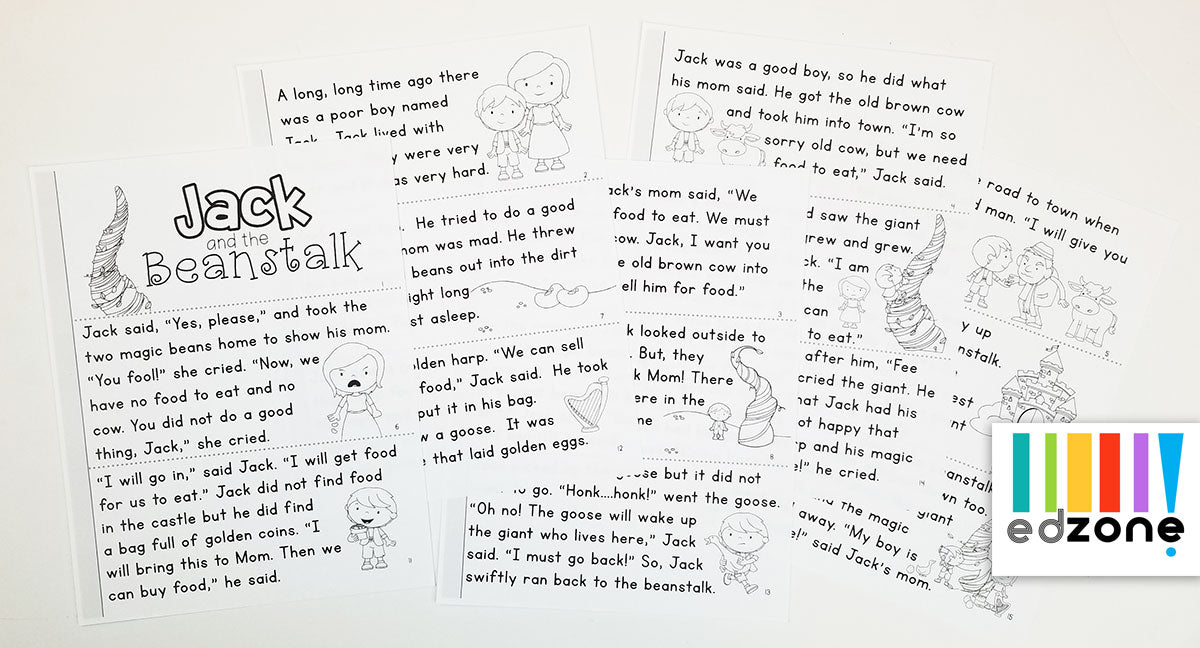 Jack
and the
Beanstalk
1
Jack said, “Yes, please,” and took the
two magic beans home to show his mom.
“You fool!” she cried. “Now, we
have no food to eat and no
cow. You did not do a good
thing, Jack,” she cried.
6
“I will go in,” said Jack. “I will get food
for us to eat.” Jack did not find food
in the castle but he did find
a bag full of golden coins. “I
will bring this to Mom. Then we
can buy food,” he said.
11
A long, long time ago there
was a poor boy named
Jack. Jack lived with
y were very
as very hard.
2
. He tried to do a good
mom was mad. He threw
beans out into the dirt
ight long
st asleep.
7
olden harp. “We can sell
food,” Jack said. He took
put it in his bag.
w a goose. It was
e that laid golden eggs.
12
Jack's mom said, “We
food to eat. We must
cow. Jack, I want you
e old brown cow into
ell him for food.”
3
k looked outside to
. But, they
k Mom! There
ere in the
ne
8
goose but it did not
to go. “Honk....honk!” went the goose.
“Oh no! The goose will wake up
the giant who lives here,” Jack
said. “I must go back!” So, Jack
swiftly ran back to the beanstalk.
13
Jack was a good boy, so he did what
his mom said. He got the old brown cow
and took him into town. “I'm so
sorry old cow, but we need
food to eat,” Jack said.
4
d saw the giant
grew and grew.
ck. “I am
the
can
to eat.”
9
after him, “Fee
cried the giant. He
hat Jack had his
ot happy that
rp and his magic
e!” he cried.
14
e road to town when
d man. “I will give you
5
y up
nstalk.
est
ant
beanstalk
wn too.
giant
and the magic
away. “My boy is
e!” said Jack's mom.
15
edzone